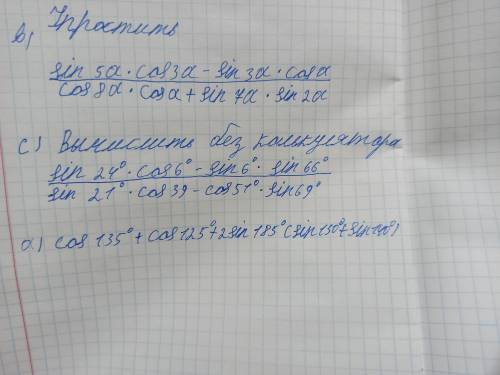 Упростить
b)
sin 5α · cos3α - sin 3α · cosα
cos 8α · cosα + sin 7α · sin 2α
c) Вычислить без калькулятора
sin 24° · cos 6° - sin 6° · sin 66°
sin 21° · cos 39 - cos 51° · sin 69°
a) cos 135° + cos 125° + 2 sin 185° (sin 130° + sin 140°)